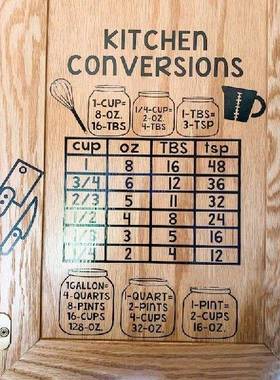 KITCHEN
CONVERSIONS
1-CUP=
8-OZ.
16-TBS
1/4-CUP=
2-OZ.
4-TBS
1-TBS=
3-TSP
cup oz TBS tsp
1 8 16 48
3/4 6 12 36
2/3 5 11 32
1/2 4 8 24
1/3 3 5 16
1/4 2 4 12
1GALLON=
4-QUARTS
8-PINTS
16-CUPS
128-OZ.
1-QUART=
2-PINTS
4-CUPS
32-OZ.
1-PINT=
2-CUPS
16-OZ.